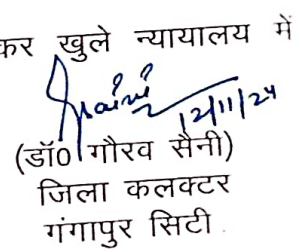 कर खुले न्यायालय में
12/11/24
(डॉ० गौरव सैनी)
जिला कलक्टर
गंगापुर सिटी